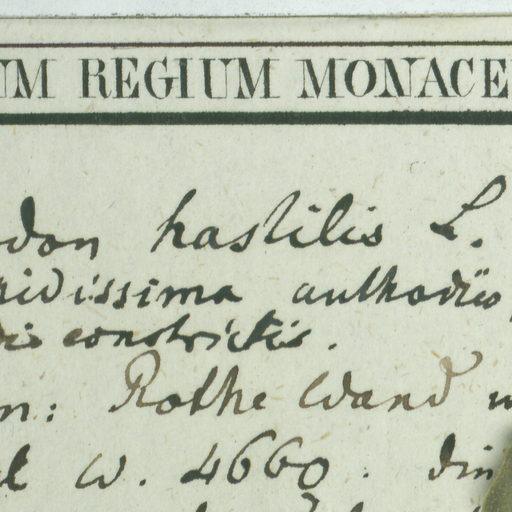 UM REGIUM MONACE
don hastilis L.
ridissima anthodiis
dis constrictis.
n: Rothe Wand
l w. 4660. din